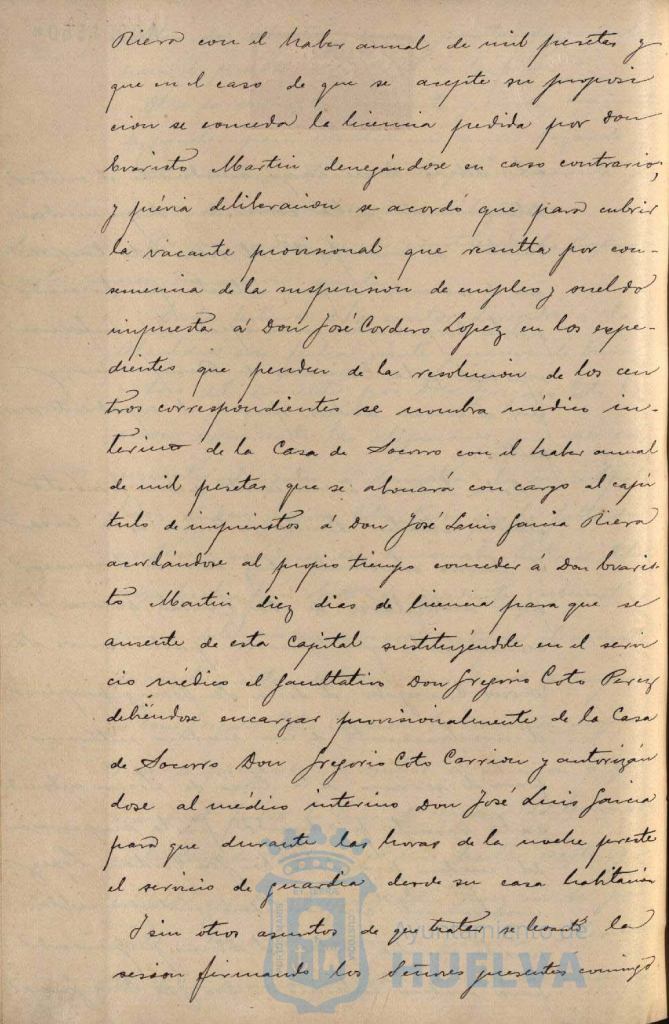 Riera con el haber annual de mil pesetas y
que en el caso de que se acepte su proposi
cion se conceda la licencia pedida por Don
Evaristo Martin denegándose en caso contrario,
y prévia deliberacion se acordó que para cubrir
la vacante provisional que resulta por con-
secuencia de la suspension de empleo y sueldo
impuesta á Don José Cordero Lopez en los espe-
dientes que penden de la resolucion de los cen
tros correspondientes se nombra médico in-
terino de la Casa de Socorro con el haber annual
de mil pesetas que se abonará con cargo al capí
tulo de imprevistos á Don José Luis Garcia Riera
acordándose al propio tiempo conceder á Don Evaris-
to Martin diez dias de licencia para que se
ausente de esta Capital sustituyéndole en el servi
cio médico el facultativo Don Gregorio Coto Perez
debiéndose encargar provisionalmente de la Casa
de Socorro Don Gregorio Coto Carrion y autorizán
dose al médico interino Don José Luis Garcia
para que durante las horas de la noche preste
el servicio de guardia desde su casa habitación
Y sin otros asuntos de que tratar se levantó la
sesion firmando los Señores presentes conmigo
Ayuntamiento de
HUELVA